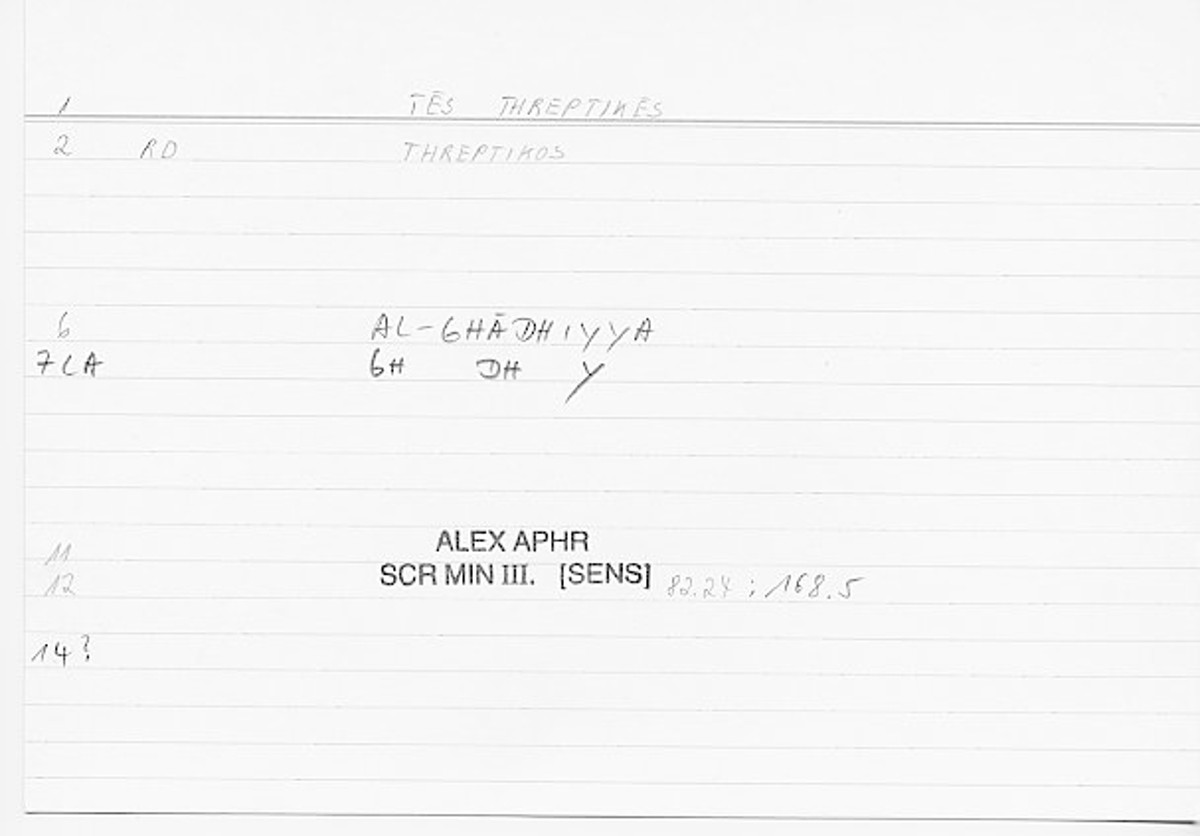 1 TĒS THREPTIKĒS
2 RD THREPTIKOS
6 AL-GHĀDHIYYA
7 LA GH DH Y
11 ALEX APHR
12 SCR MIN III. [SENS] 82.24 ; 168.5
14?